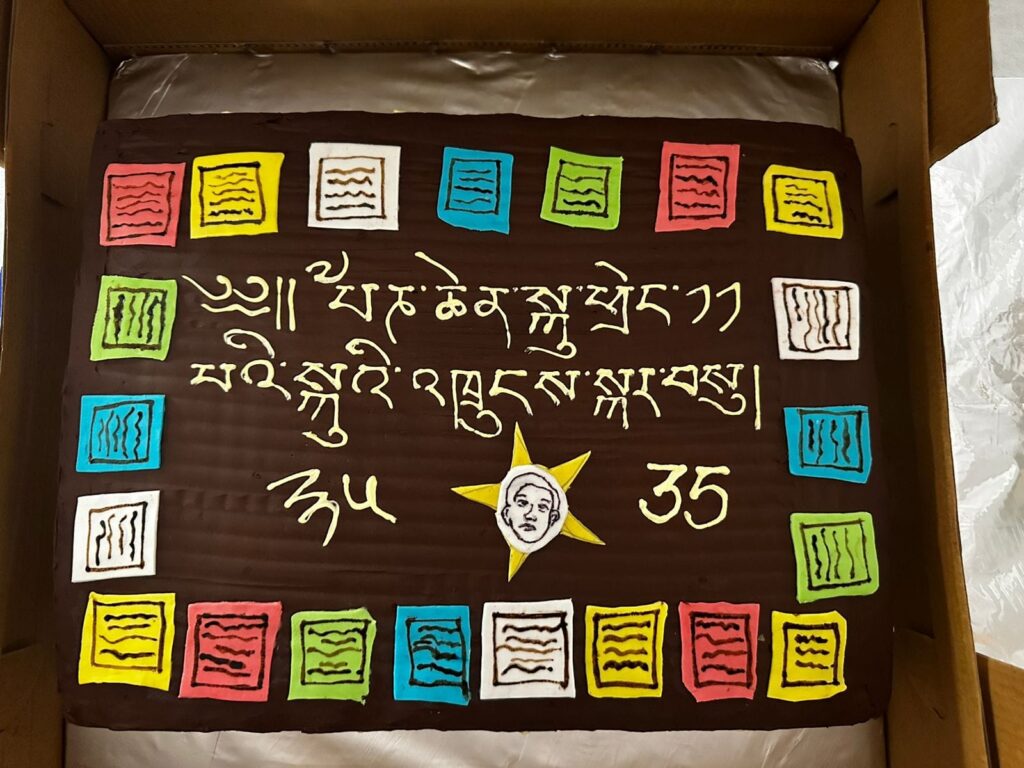 ༄༅།། ༸པཎ་ཆེན་སྐུ་ཕྲེང་༡༡
པའི་སྐུའི་འཁྲུངས་སྐར་བསུ།
༣༥ 35